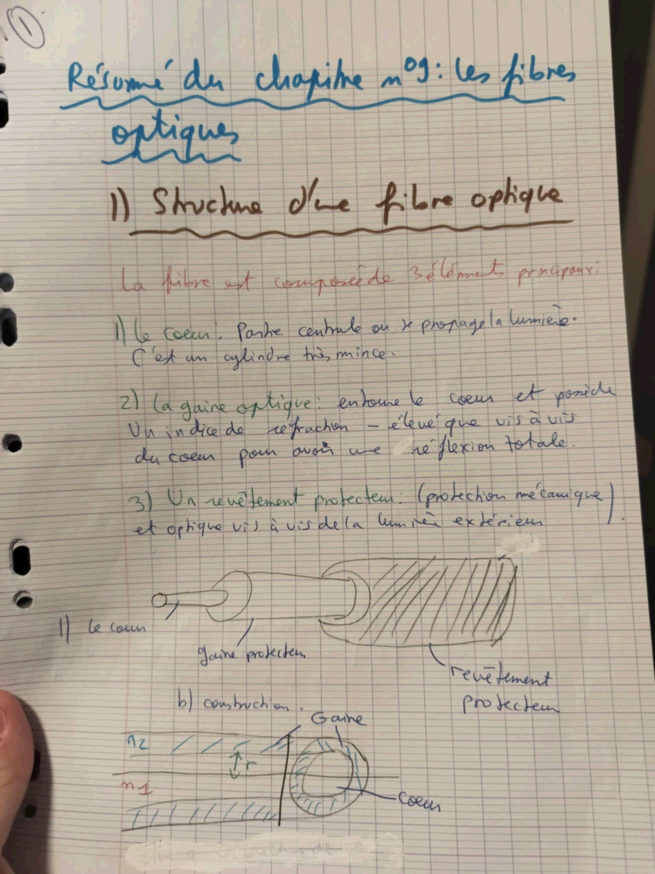 1
Résumé du chapitre n°9: les fibres
optiques
1) Structure d'une fibre optique
La fibre est composée de 3 éléments principaux:
1) le coeur: Partie centrale ou se propage la lumière.
C'est un cylindre très mince.
2) La gaine optique: entoure le coeur et possède
Un indice de réfraction - élevé que vis à vis
du coeur pour avoir une réflexion totale.
3) Un revêtement protecteur: (protection mécanique)
et optique vis à vis de la lumière extérieur.
1) le coeur
gaine protecteur
revêtement
protecteur
b) construction.
Gaine
n2
r
n1
coeur